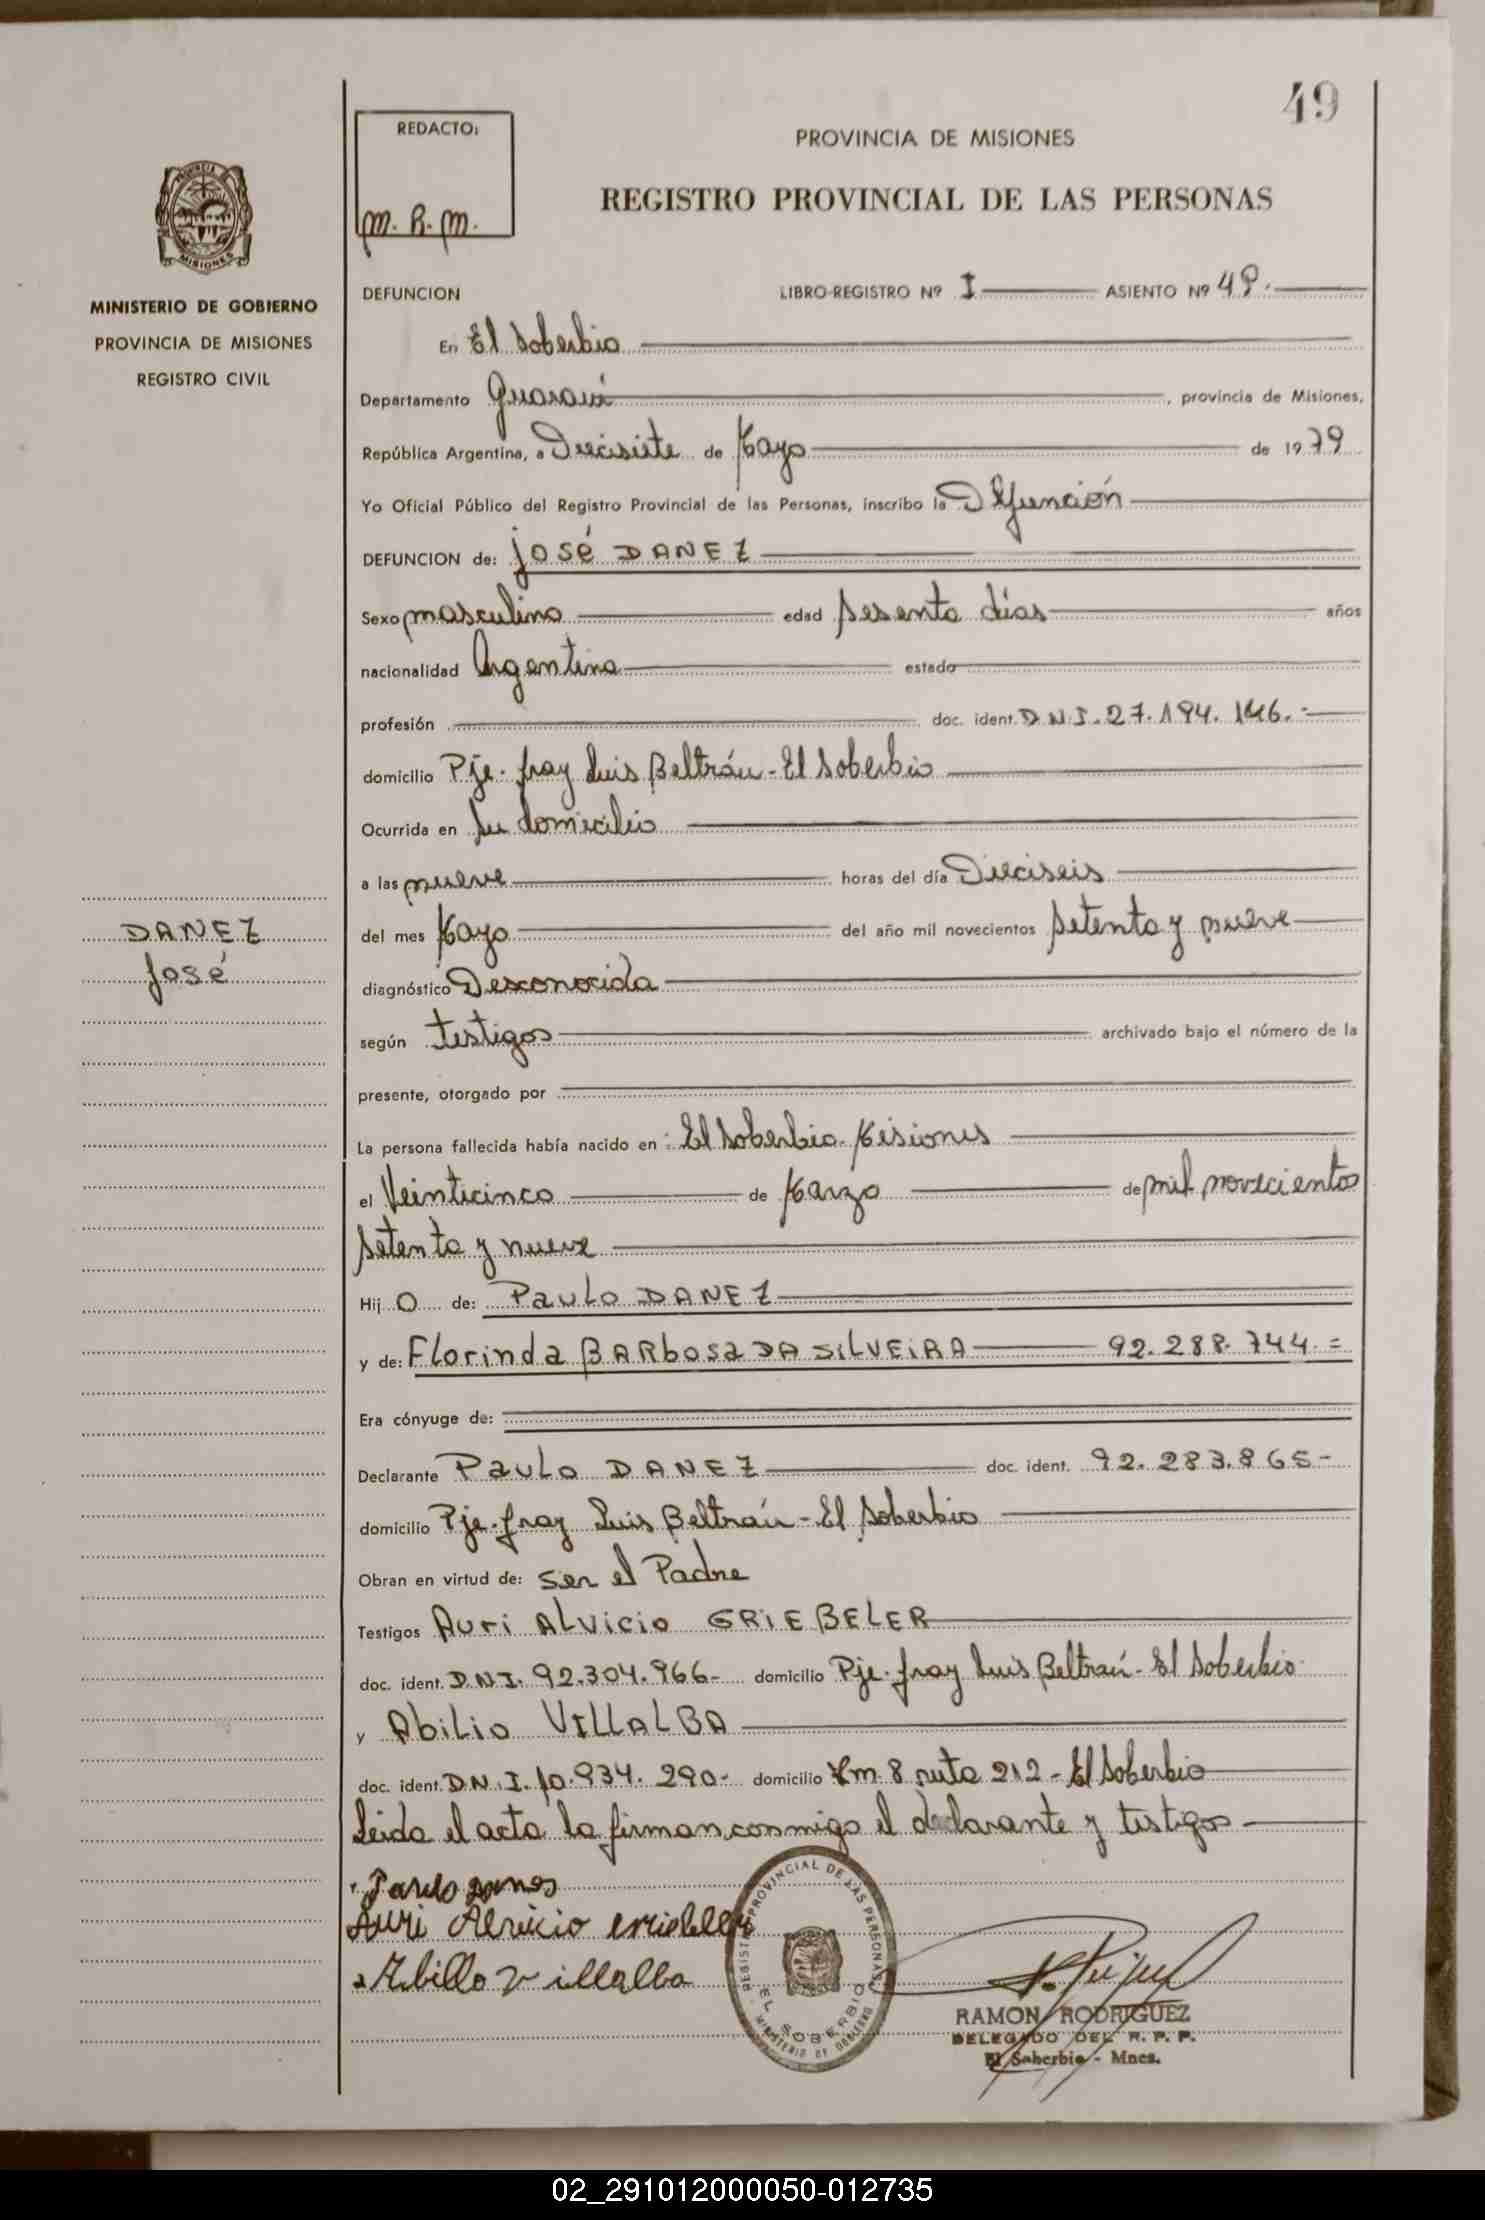 49
REDACTO:
M. R. M.
PROVINCIA DE MISIONES
REGISTRO PROVINCIAL DE LAS PERSONAS
MISIONES
MINISTERIO DE GOBIERNO
PROVINCIA DE MISIONES
REGISTRO CIVIL
DEFUNCION LIBRO-REGISTRO Nº I ASIENTO Nº 49.
En El Soberbio
Departamento Guaraní, provincia de Misiones,
República Argentina, a Diecisiete de Mayo de 1979
Yo Oficial Público del Registro Provincial de las Personas, inscribo la Defunción
DEFUNCION de: José DANEZ
Sexo masculino edad sesenta días años
nacionalidad Argentina estado
profesión doc. ident. D.N.I. 27.194.146.-
domicilio Pje. fray Luis Beltrán - El Soberbio
Ocurrida en Su domicilio
a las nueve horas del día Dieciseis
del mes Mayo del año mil novecientos setenta y nueve
diagnóstico Desconocida
según testigos archivado bajo el número de la
presente, otorgado por
La persona fallecida había nacido en: El Soberbio. Misiones
el Veinticinco de Marzo de mil novecientos
setenta y nueve
Hij o de: Paulo DANEZ
y de: Florinda BARbosa DA SILVEIRA 92.288.744.=
Era cónyuge de:
Declarante Paulo DANEZ doc. ident. 92.283.865-
domicilio Pje. fray Luis Beltrán - El Soberbio
Obran en virtud de: ser el Padre
Testigos Auri ALVicio GRIEBELER
doc. ident. D.N.I. 92.304.966- domicilio Pje. fray Luis Beltrán - El Soberbio
y Abilio VILLALBA
doc. ident. D.N.I. 10.934.290- domicilio Km. 8 ruta 212 - El Soberbio
Leida el acta la firman conmigo el declarante y testigos
DANEZ
José
Paulo Danes
Auri Alvicio
Abillo Villalba
REGISTRO PROVINCIAL DE LAS PERSONAS
EL SOBERBIO
MINISTERIO DE GOBIERNO
RAMON RODRIGUEZ
DELEGADO DEL R. P. P.
El Soberbio - Mnes.
02_291012000050-012735